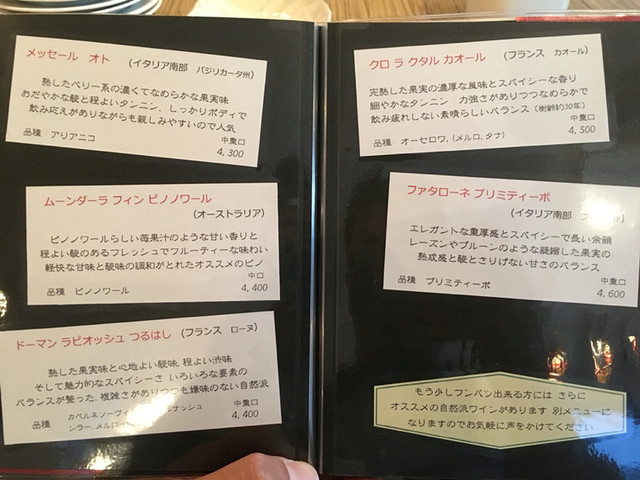 メッセール オト (イタリア南部 バジリカータ州)
熟したベリー系の濃くてなめらかな果実味
おだやかな酸と程よいタンニン、しっかりボディで
飲み応えがありながらも親しみやすいので人気
品種 アリアニコ 中重口
4,300
ムーンダーラ フィン ピノノワール
(オーストラリア)
ピノノワールらしい苺果汁のような甘い香りと
程よい酸のあるフレッシュでフルーティーな味わい
軽快な甘味と酸味の調和がとれたオススメのピノ
品種 ピノノワール 中口
4,400
ドーマン ラピオッシュ つるはし (フランス ローヌ)
熟した果実味と心地よい酸味 程よい渋味
そして魅力的なスパイシーさ いろいろな要素の
バランスが整った、複雑さがありつつも嫌味のない自然派
品種 カベルネソーヴィ ルナッシュ 中重口
シラー、メルロ 4,400
クロ ラ クタル カオール (フランス カオール)
完熟した果実の濃厚な風味とスパイシーな香り
細やかなタンニン 力強さがありつつなめらかで
飲み疲れしない素晴らしいバランス (樹齢約30年)
品種 オーセロワ、(メルロ、タナ) 中重口
4,500
ファタローネ プリミティーボ
(イタリア南部 プ 州)
エレガントな重厚感とスパイシーで長い余韻
レーズンやプルーンのような凝縮した果実の
熟成感と酸とさりげない甘さのバランス
品種 プリミティーボ 中重口
4,600
もう少しフンパツ出来る方には さらに
オススメの自然派ワインがあります 別メニューに
なりますのでお気軽に声をかけてください